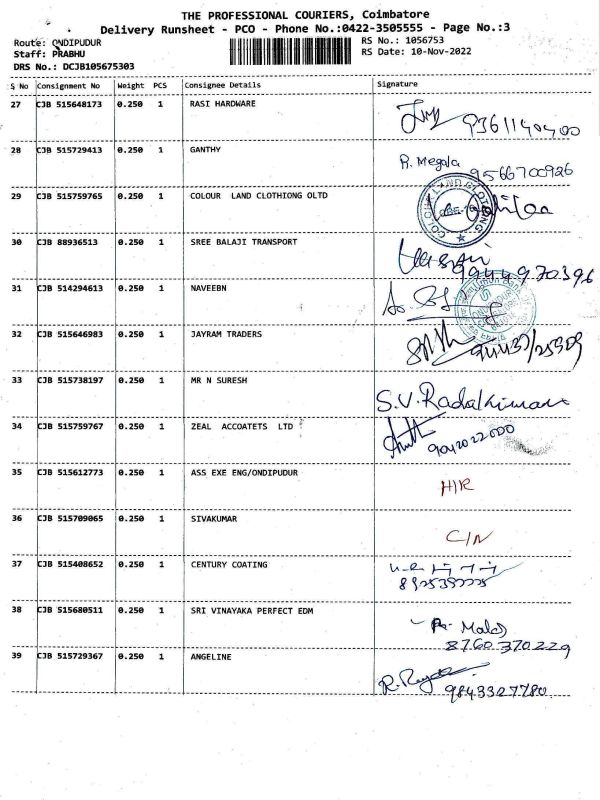 THE PROFESSIONAL COURIERS, Coimbatore
Delivery Runsheet - PCO - Phone No.:0422-3505555 - Page No.:3
Route: ONDIPUDUR RS No.: 1056753
Staff: PRABHU RS Date: 10-Nov-2022
DRS No.: DCJB105675303
S No Consignment No Weight PCS Consignee Details Signature
27 CJB 515648173 0.250 1 RASI HARDWARE
28 CJB 515729413 0.250 1 GANTHY R. Megala 9566700926
29 CJB 515759765 0.250 1 COLOUR LAND CLOTHIONG OLTD
30 CJB 88936513 0.250 1 SREE BALAJI TRANSPORT 9944970396
31 CJB 514294613 0.250 1 NAVEEBN
32 CJB 515646983 0.250 1 JAYRAM TRADERS
33 CJB 515738197 0.250 1 MR N SURESH S.V.Radakrimar
34 CJB 515759767 0.250 1 ZEAL ACCOATETS LTD 9042022000
35 CJB 515612773 0.250 1 ASS EXE ENG/ONDIPUDUR H/R
36 CJB 515709065 0.250 1 SIVAKUMAR C/N
37 CJB 515408652 0.250 1 CENTURY COATING
38 CJB 515680511 0.250 1 SRI VINAYAKA PERFECT EDM 8760370229
39 CJB 515729367 0.250 1 ANGELINE 9843327780